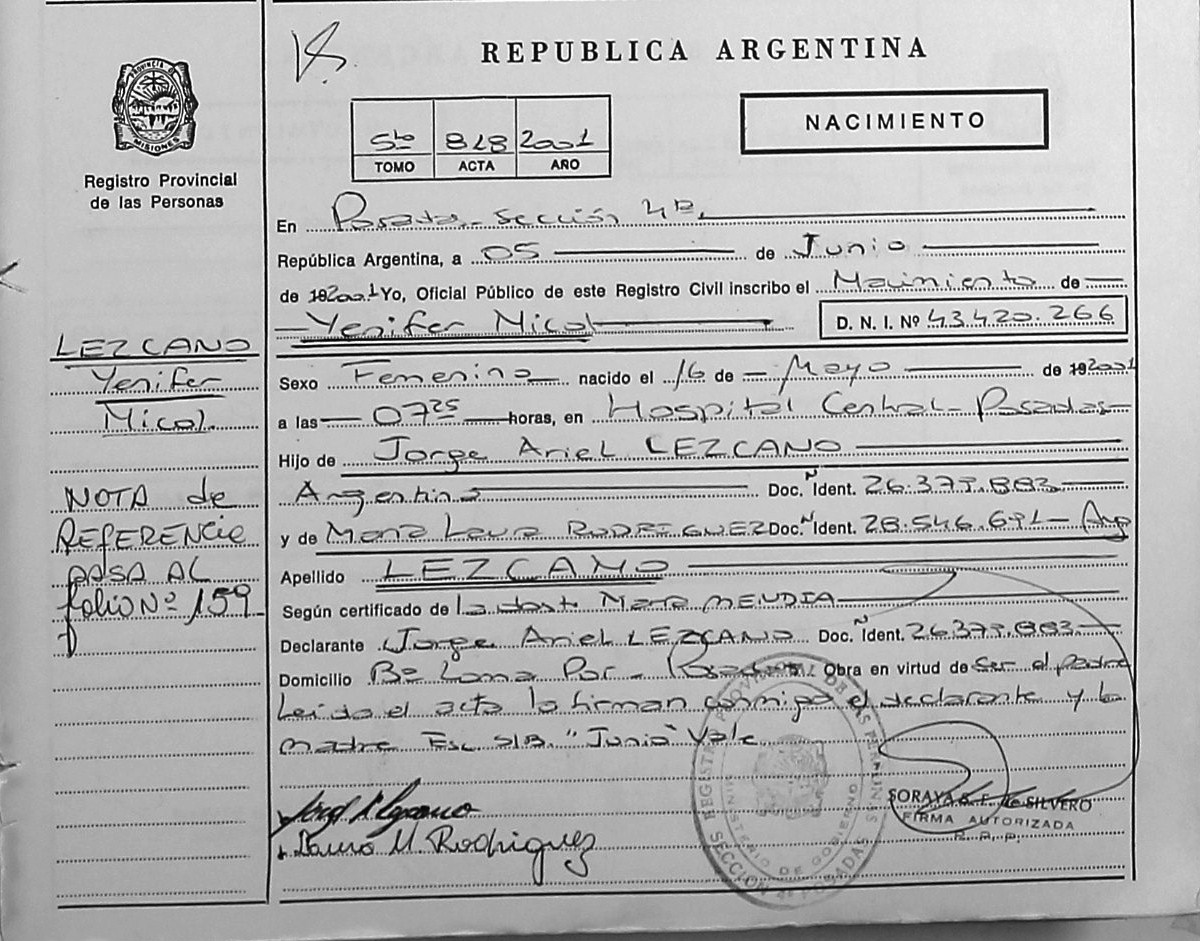 PROVINCIA DE
MISIONES
Registro Provincial
de las Personas
LEZCANO
Yenifer
Micol.
NOTA de
REFERENCIA
PASA AL
folio Nº 159
REPUBLICA ARGENTINA
5to 828 2001
TOMO ACTA AÑO
NACIMIENTO
En Posadas Sección 4ª
República Argentina, a 05 de Junio
de 2001 Yo, Oficial Público de este Registro Civil inscribo el Nacimiento de
Yenifer Micol
D. N. I. Nº 43.420.266
Sexo Femenino nacido el 16 de Mayo de 2001
a las 07 25 horas, en Hospital Central - Posadas
Hijo de Jorge Ariel LEZCANO
Argentino Doc. Ident. 26.373.883
y de María Laura RODRIGUEZ Doc. Ident. 28.546.691 - Arg
Apellido LEZCANO
Según certificado de la María MENDIA
Declarante Jorge Ariel LEZCANO Doc. Ident. 26.373.883
Domicilio Bº Loma Por - Posadas Obra en virtud de Ser el padre
Leida el acta la firman conmigo el declarante y la
madre Esc S/B. "Junio" Vale
Laura M. Rodriguez
SORAYA de SILVERO
FIRMA AUTORIZADA
R. P. P.
REGISTRO PROVINCIAL DE LAS PERSONAS
MINISTERIO DE GOBIERNO
SECCION 4ª POSADAS